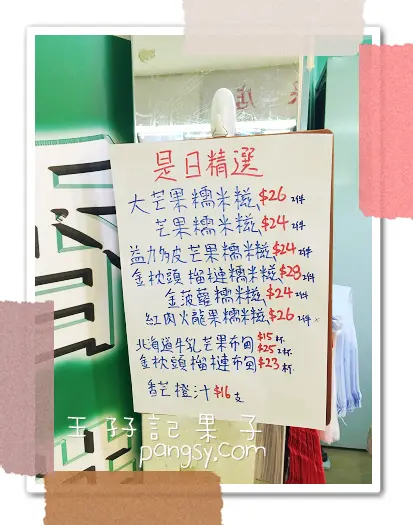 是日精選
大芒果糯米糍 $26 2件
芒果糯米糍 $24 2件
益力多皮芒果糯米糍 $24 2件
金枕頭榴槤糯米糍 $29 2件
金菠蘿糯米糍 $24 2件
紅肉火龍果糯米糍 $26 2件
北海道牛乳芒果布甸 $15 杯
$25 2杯
金枕頭榴槤布甸 $23 杯
香芒橙汁 $16 支
王孖記菓子
pangsy.com